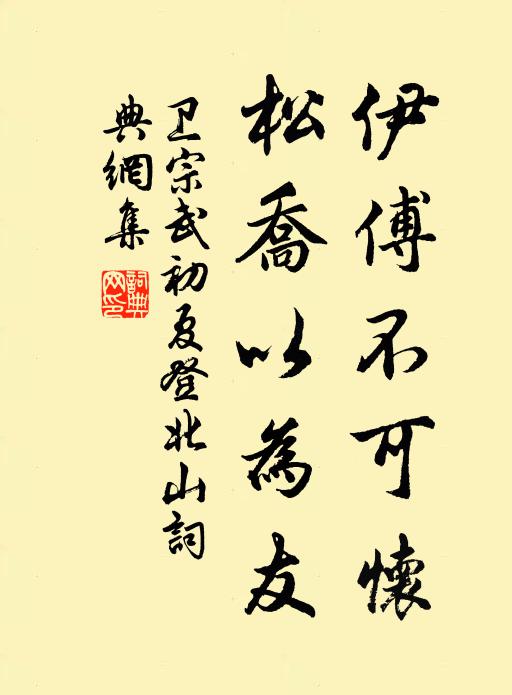 伊傅不可懷
松喬以為友
卫宗武初夏登北山詞
典網集
詞典网印